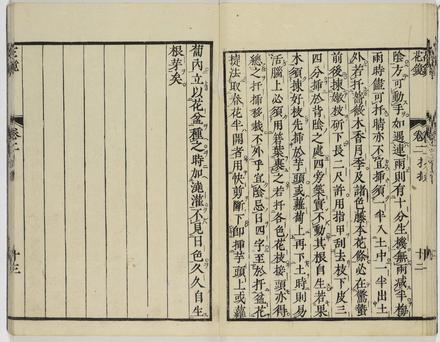 花鏡
卷二扦插
十二
陰方可動手如遇連雨則有十分生機無雨減半梅
雨時儘可扦晴亦不宜插須一半入土中一半出土
外若扦薔薇木香月季及諸色藤本花條必在驚蟄
前後揀嫩枝斫下長二尺許用指甲刮去枝下皮三
四分插於背陰之處四旁築實不動其根自生若果
木須揀好枝先插於芋頭或蘿蔔上再下土時則易
活腦上必須用箬葉裹之若扦各色花枝接頭亦得
總之扦插移栽不外乎宜陰忌日四字至於扦盆花
捷法取春花半開者用快剪斷下卽插芋頭上或蘿
蔔內立以花盆種之時加澆灌不見日色久久自生
根芽矣
花鏡
卷二
十三